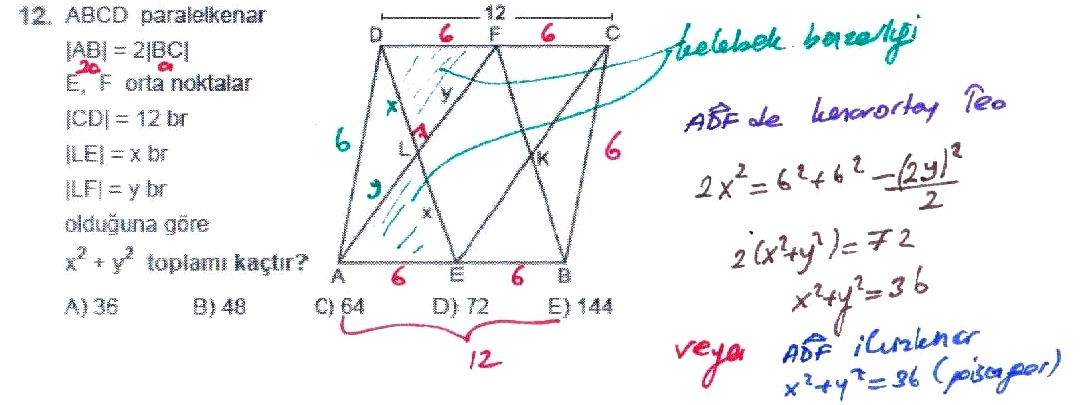 12. ABCD paralelkenar
|AB| = 2|BC|
2a a
E, F orta noktalar
|CD| = 12 br
|LE| = x br
|LF| = y br
olduğuna göre
x² + y² toplamı kaçtır?
A) 36 B) 48 C) 64 D) 72 E) 144
12
12
D 6 F 6 C
x y
6 L K 6
y x
A 6 E 6 B
kelebek benzerliği
ADF de kenarortay Teo
2x² = 6² + 6² - (2y)²/2
2(x²+y²) = 72
x²+y² = 36
veya ADF ikizkenar
x²+y² = 36 (pisagor)